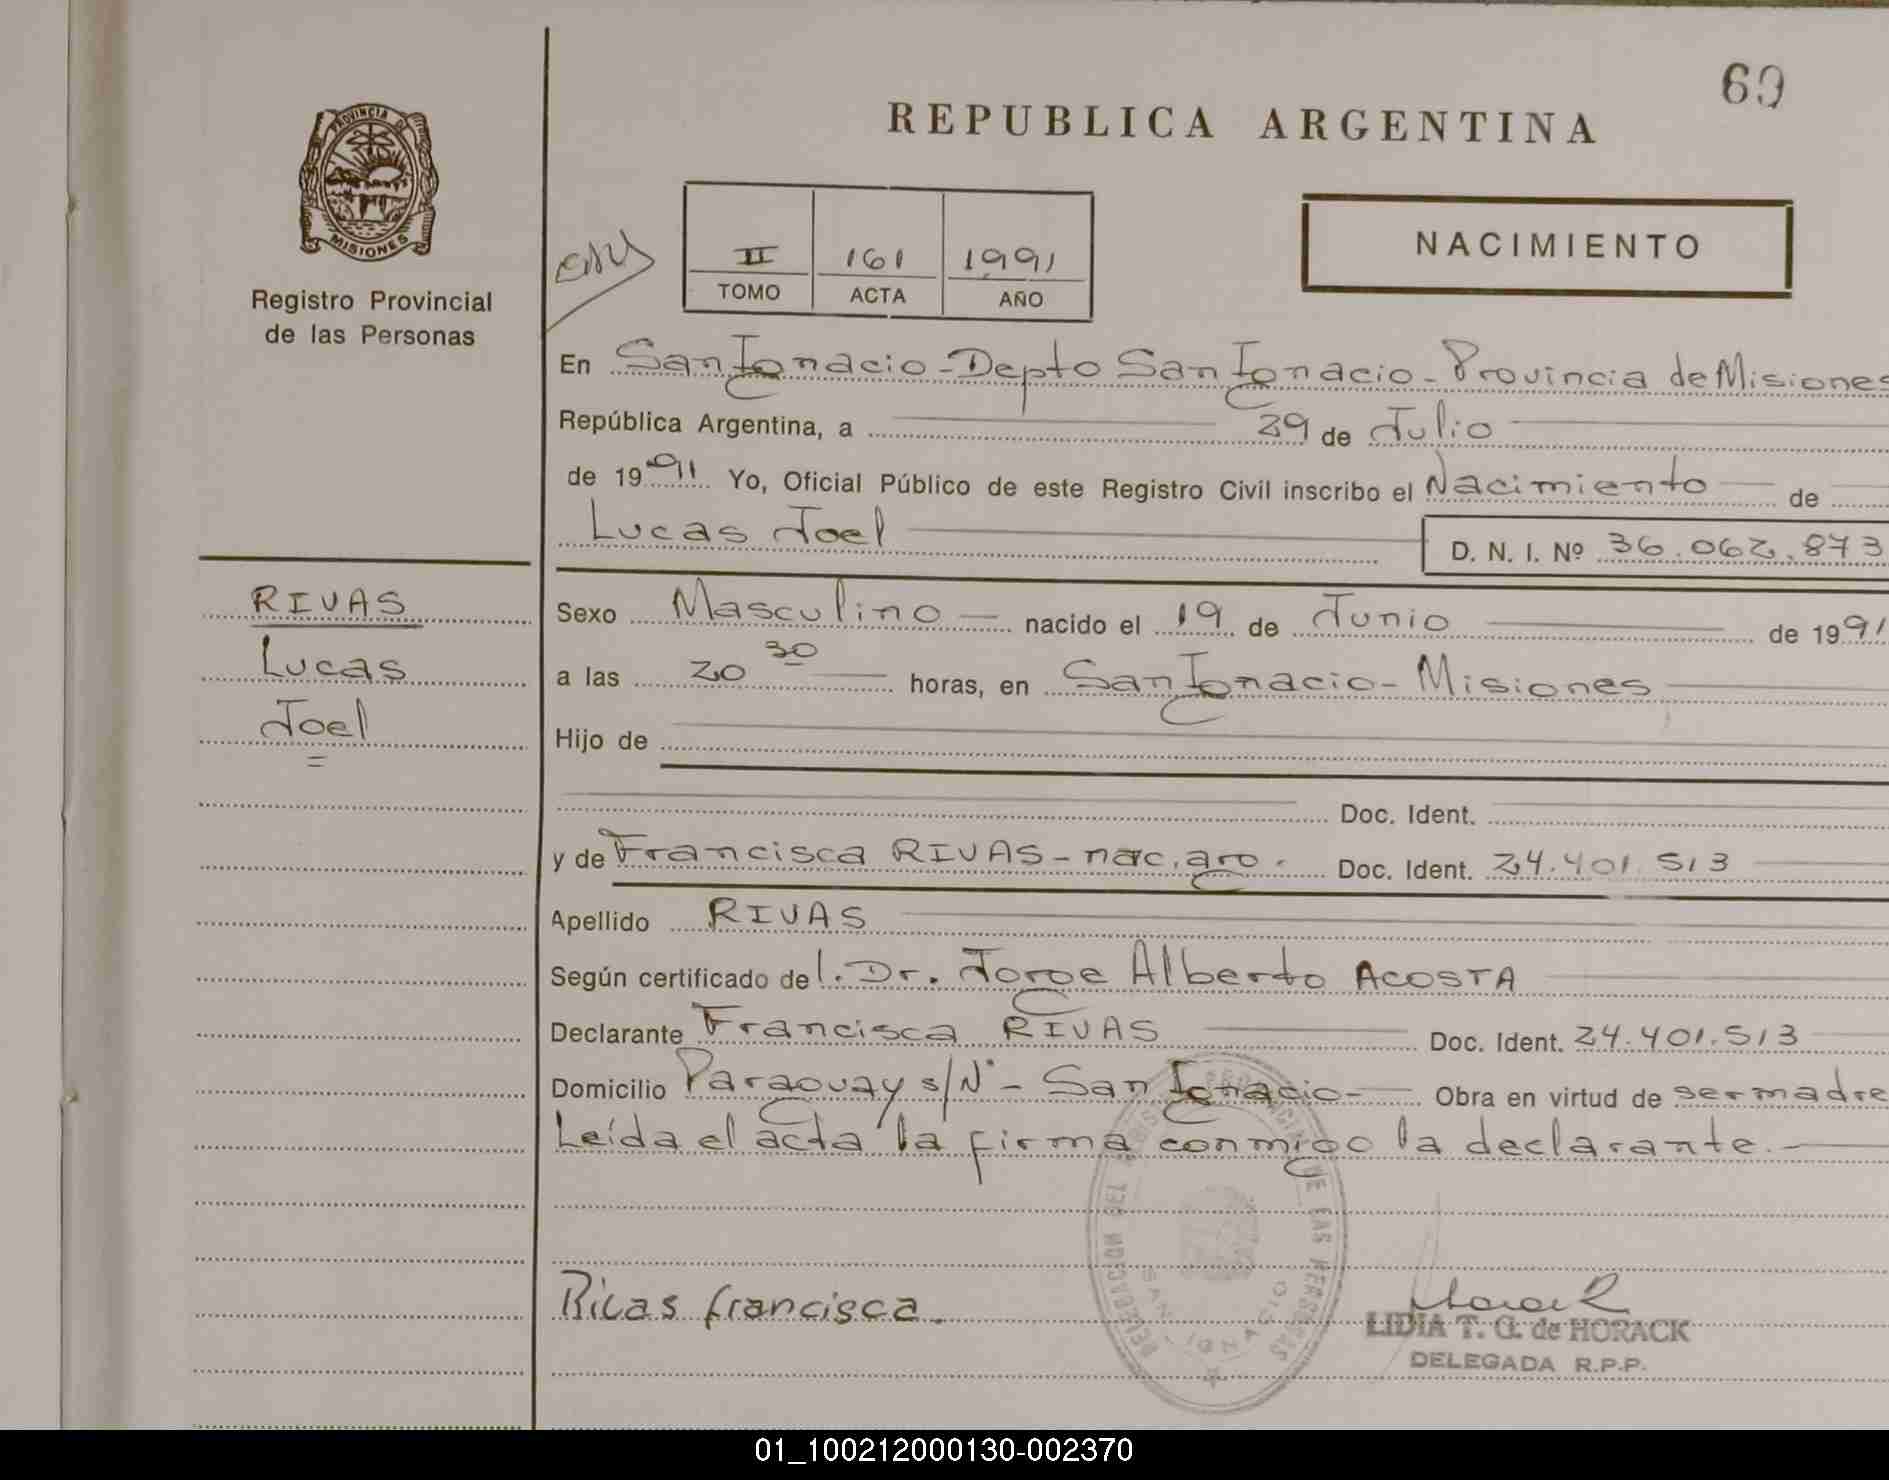 69
REPUBLICA ARGENTINA
PROVINCIA DE
MISIONES
Registro Provincial
de las Personas
II 161 1991
TOMO ACTA AÑO
NACIMIENTO
En San Ignacio - Depto San Ignacio - Provincia de Misiones
República Argentina, a 29 de Julio
de 1991 Yo, Oficial Público de este Registro Civil inscribo el Nacimiento de
Lucas Joel D. N. I. Nº 36.062.873
RIVAS
Lucas
Joel
Sexo Masculino nacido el 19 de Junio de 1991
a las 20 30 horas, en San Ignacio - Misiones
Hijo de
Doc. Ident.
y de Francisca RIVAS - nac. arg. Doc. Ident. 24.401.513
Apellido RIVAS
Según certificado del. Dr. Jorge Alberto ACOSTA
Declarante Francisca RIVAS Doc. Ident. 24.401.513
Domicilio Paraguay s/Nº - San Ignacio - Obra en virtud de ser madre
Leída el acta la firma conmigo la declarante. -
DELEGACION DEL REGISTRO PROVINCIAL DE LAS PERSONAS
SAN IGNACIO
Rivas francisca.
Horack
LIDIA T. G. de HORACK
DELEGADA R.P.P.
01_100212000130-002370